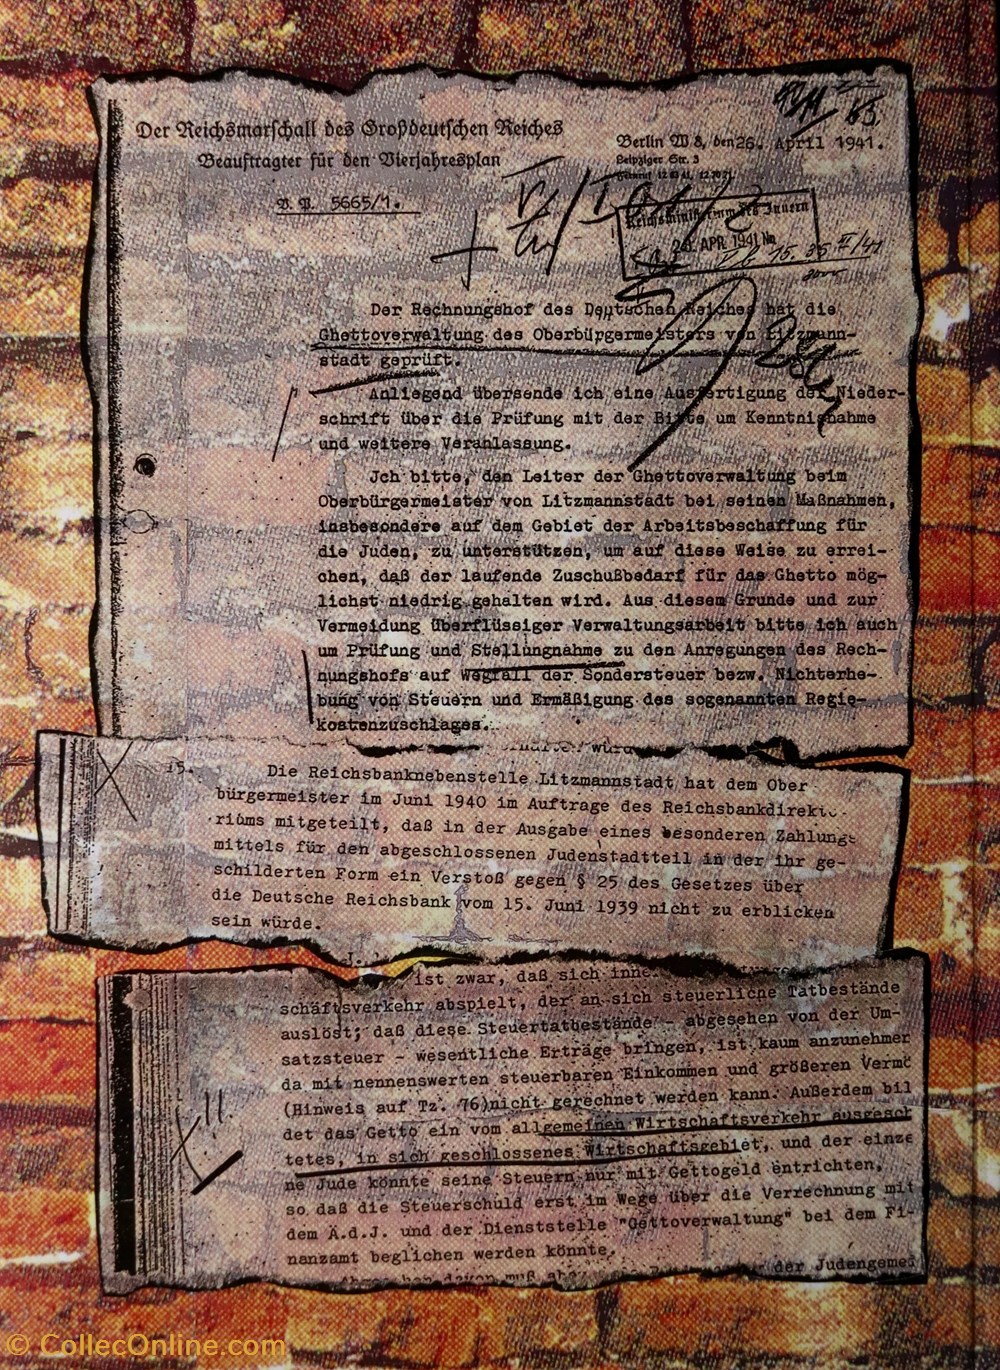 Der Reichsmarschall des Großdeutschen Reiches
Beauftragter für den Vierjahresplan
V. P. 5665/1.
Berlin W 8, den 26. April 1941.
Leipziger Str. 3
Reichsministerium des Innern
APR. 1941
Der Rechnungshof des Deutschen Reiches hat die
Ghettoverwaltung des Oberbürgermeisters von Litzmann-
stadt geprüft.
Anliegend übersende ich eine Ausfertigung der Nieder-
schrift über die Prüfung mit der Bitte um Kenntnisnahme
und weitere Veranlassung.
Jch bitte, den Leiter der Ghettoverwaltung beim
Oberbürgermeister von Litzmannstadt bei seinen Maßnahmen,
insbesondere auf dem Gebiet der Arbeitsbeschaffung für
die Juden, zu unterstützen, um auf diese Weise zu errei-
chen, daß der laufende Zuschußbedarf für das Ghetto mög-
lichst niedrig gehalten wird. Aus diesem Grunde und zur
Vermeidung überflüssiger Verwaltungsarbeit bitte ich auch
um Prüfung und Stellungnahme zu den Anregungen des Rech-
nungshofs auf Wegfall der Sondersteuer bezw. Nichterhe-
bung von Steuern und Ermäßigung des sogenannten Regie-
kostenzuschlages.
15.
Die Reichsbanknebenstelle Litzmannstadt hat dem Ober
bürgermeister im Juni 1940 im Auftrage des Reichsbankdirekt
riums mitgeteilt, daß in der Ausgabe eines besonderen Zahlungs
mittels für den abgeschlossenen Judenstadtteil in der ihr ge-
schilderten Form ein Verstoß gegen § 25 des Gesetzes über
die Deutsche Reichsbank vom 15. Juni 1939 nicht zu erblicken
sein würde.
ist zwar, daß sich
schäftsverkehr abspielt, der an sich steuerliche Tatbestände
auslöst; daß diese Steuertatbestände - abgesehen von der Um-
satzsteuer - wesentliche Erträge bringen, ist kaum anzunehmen
da mit nennenswerten steuerbaren Einkommen und größeren Vermö
(Hinweis auf Tz. 76) nicht gerechnet werden kann. Außerdem bil
det das Getto ein vom allgemeinen Wirtschaftsverkehr ausgesch
tetes, in sich geschlossenes Wirtschaftsgebiet, und der einze
ne Jude könnte seine Steuern nur mit Gettogeld entrichten,
so daß die Steuerschuld erst im Wege über die Verrechnung mit
dem Ä.d.J. und der Dienststelle "Gettoverwaltung" bei dem Fi-
nanzamt beglichen werden könnte.
der Judengemei
© CollecOnline.com